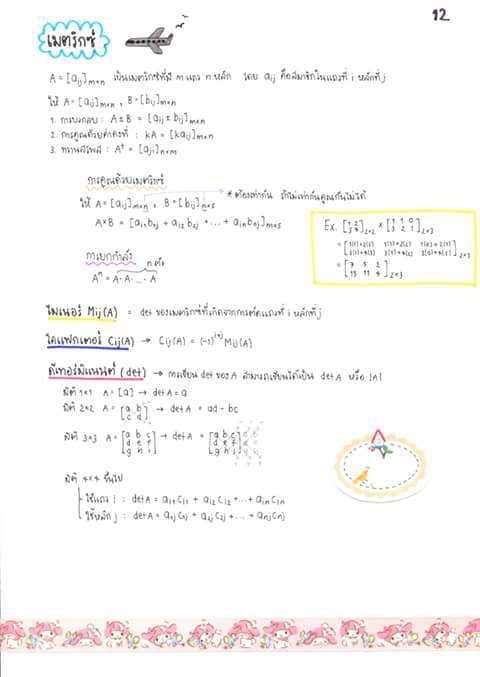 12
เมตริกซ์
A = [aij]m×n เป็นเมตริกซ์ที่มี m แถว n หลัก โดย aij คือสมาชิกในแถวที่ i หลักที่ j
ให้ A = [aij]m×n , B = [bij]m×n
1. การบวกลบ : A ± B = [aij ± bij]m×n
2. การคูณด้วยค่าคงที่ : kA = [kaij]m×n
3. ทรานสโพส : Aᵗ = [aji]n×m
การคูณด้วยเมตริกซ์
ให้ A = [aij]m×n , B = [bij]n×s * ต้องเท่ากัน ถ้าไม่เท่ากันคูณกันไม่ได้
A×B = [ai1b1j + ai2b2j + ... + ainbnj]m×s
Ex. [1 2 3 4]2×2 × [1 1 0 3 2 1]2×3
= [1(1)+2(3) 1(1)+2(2) 1(0)+2(1) 3(1)+4(3) 3(1)+4(2) 3(0)+4(1)]2×3
= [7 5 2 15 11 4]2×3
การยกกำลัง
n ตัว
Aⁿ = A·A·...·A
ไมเนอร์ Mij(A) = det ของเมตริกซ์ที่เกิดจากการตัดแถวที่ i หลักที่ j
โคแฟกเตอร์ Cij(A) → Cij(A) = (-1)^(i+j) Mij(A)
ดีเทอร์มิแนนต์ (det) → การเขียน det ของ A สามารถเขียนได้เป็น det A หรือ |A|
มิติ 1×1 A = [a] → det A = a
มิติ 2×2 A = [a b c d] → det A = ad - bc
มิติ 3×3 A = [a b c d e f g h i] → det A = [a b c d e f g h i] a b d e g h
มิติ 4×4 ขึ้นไป
ใช้แถว i : det A = ai1Ci1 + ai2Ci2 + ... + ainCin
ใช้หลัก j : det A = a1jC1j + a2jC2j + ... + anjCnj